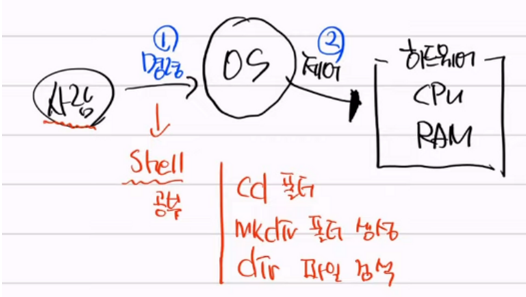 ①
명령
②
제어
사람
OS
하드웨어
CPU
RAM
Shell
공부
cd 폴더
mkdir 폴더 생성
dir 파일 검색